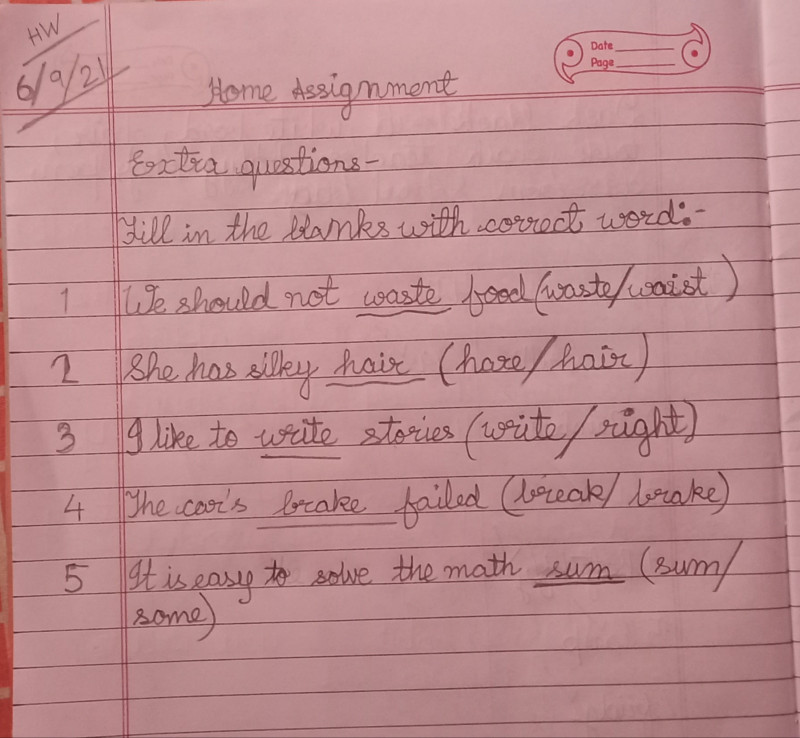 HW
6/9/21
Date
Page
Home Assignment
Extra questions-
Fill in the blanks with correct word:-
1 We should not waste food (waste/waist)
2 She has silky hair (hare/hair)
3 I like to write stories (write/right)
4 The car's brake failed (break/brake)
5 It is easy to solve the math sum (sum/
some)